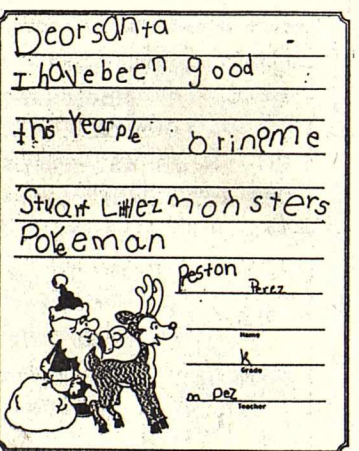 Deor santa
I have been good
this Year ple bringme
Stuart Littlez monsters
Pokeman
Peston
Perez
Name
K
Grade
m Pez
Teacher